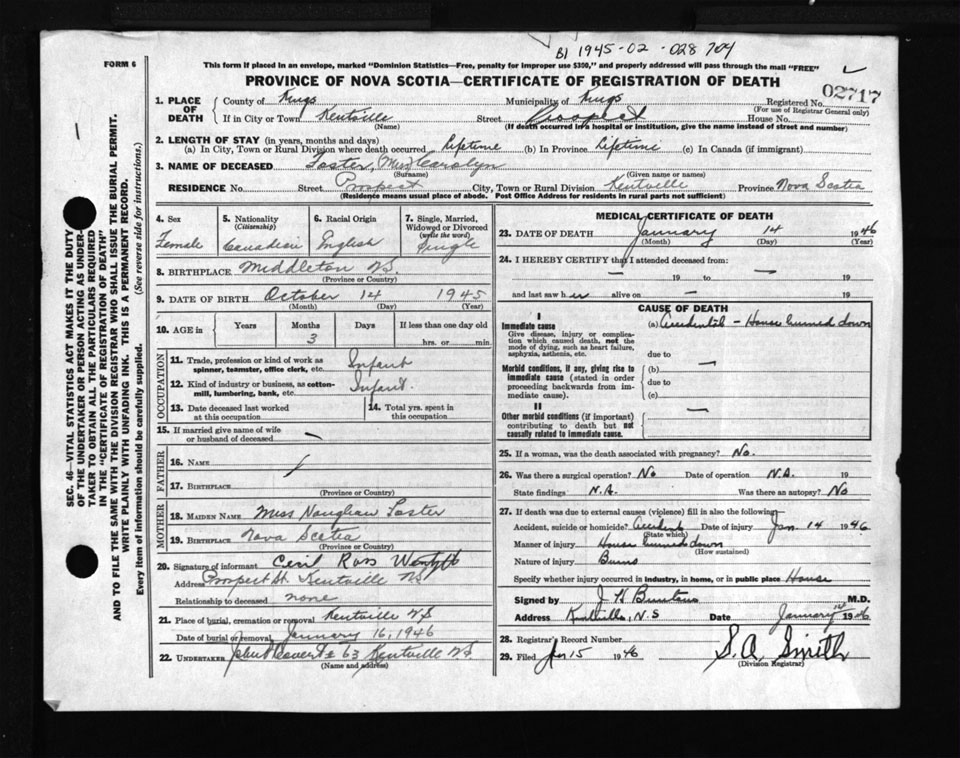 B1 1945-02-028704
FORM 6
This form if placed in an envelope, marked "Dominion Statistics—Free, penalty for improper use $300," and properly addressed will pass through the mail "FREE"
PROVINCE OF NOVA SCOTIA—CERTIFICATE OF REGISTRATION OF DEATH
02717
1. PLACE OF DEATH County of Kings Municipality of Kings Registered No. (For use of Registrar General only)
If in City or Town Kentville (Name) Street Prospect House No.
(If death occurred in a hospital or institution, give the name instead of street and number)
2. LENGTH OF STAY (in years, months and days)
(a) In City, Town or Rural Division where death occurred lifetime (b) In Province lifetime (c) In Canada (if immigrant)
3. NAME OF DECEASED Foster, Miss Carolyn
(Surname) (Given name or names)
RESIDENCE No. Street Prospect City, Town or Rural Division Kentville Province Nova Scotia
(Residence means usual place of abode. Post Office Address for residents in rural parts not sufficient)
4. Sex Female
5. Nationality (Citizenship) Canadian
6. Racial Origin English
7. Single, Married, Widowed or Divorced (write the word) Single
8. BIRTHPLACE Middleton N.S.
(Province or Country)
9. DATE OF BIRTH October 14 1945
(Month) (Day) (Year)
10. AGE in Years Months 3 Days If less than one day old hrs. or min.
OCCUPATION
11. Trade, profession or kind of work as spinner, teamster, office clerk, etc. Infant
12. Kind of industry or business, as cotton-mill, lumbering, bank, etc. Infant.
13. Date deceased last worked at this occupation
14. Total yrs. spent in this occupation
15. If married give name of wife or husband of deceased
FATHER
16. NAME
17. BIRTHPLACE
(Province or Country)
MOTHER
18. MAIDEN NAME Miss Foster
19. BIRTHPLACE Nova Scotia
(Province or Country)
20. Signature of informant Ross
Address Prospect St. Kentville NS
Relationship to deceased none
21. Place of burial, cremation or removal Kentville NS
Date of burial or removal January 16, 1946
22. UNDERTAKER Kentville N.S.
(Name and address)
MEDICAL CERTIFICATE OF DEATH
23. DATE OF DEATH January 14 1946
(Month) (Day) (Year)
24. I HEREBY CERTIFY that I attended deceased from:
— 19 to — 19
and last saw her alive on — 19
CAUSE OF DEATH
I
Immediate cause
Give disease, injury or complication which caused death, not the mode of dying, such as heart failure, asphyxia, asthenia, etc.
(a) Accidental - House burned down
due to
Morbid conditions, if any, giving rise to immediate cause (stated in order proceeding backwards from immediate cause).
(b) —
due to
(c)
II
Other morbid conditions (if important) contributing to death but not causally related to immediate cause.
—
25. If a woman, was the death associated with pregnancy? No.
26. Was there a surgical operation? No Date of operation N.A. 19
State findings N.A. Was there an autopsy? No
27. If death was due to external causes (violence) fill in also the following:
Accident, suicide or homicide? Accident Date of injury Jan. 14 1946
(State which)
Manner of injury House burned down
(How sustained)
Nature of injury Burns
Specify whether injury occurred in industry, in home, or in public place House
Signed by J H M.D.
Address Kentville, N.S Date January 14 1946
28. Registrar's Record Number
29. Filed Jan 15 1946 S.A. Smith
(Division Registrar)
SEC. 46—VITAL STATISTICS ACT MAKES IT THE DUTY
OF THE UNDERTAKER OR PERSON ACTING AS UNDER-
TAKER TO OBTAIN ALL THE PARTICULARS REQUIRED
IN THE "CERTIFICATE OF REGISTRATION OF DEATH"
AND TO FILE THE SAME WITH THE DIVISION REGISTRAR WHO SHALL ISSUE THE BURIAL PERMIT.
WRITE PLAINLY WITH UNFADING INK. THIS IS A PERMANENT RECORD.
Every item of information should be carefully supplied. (See reverse side for instructions.)